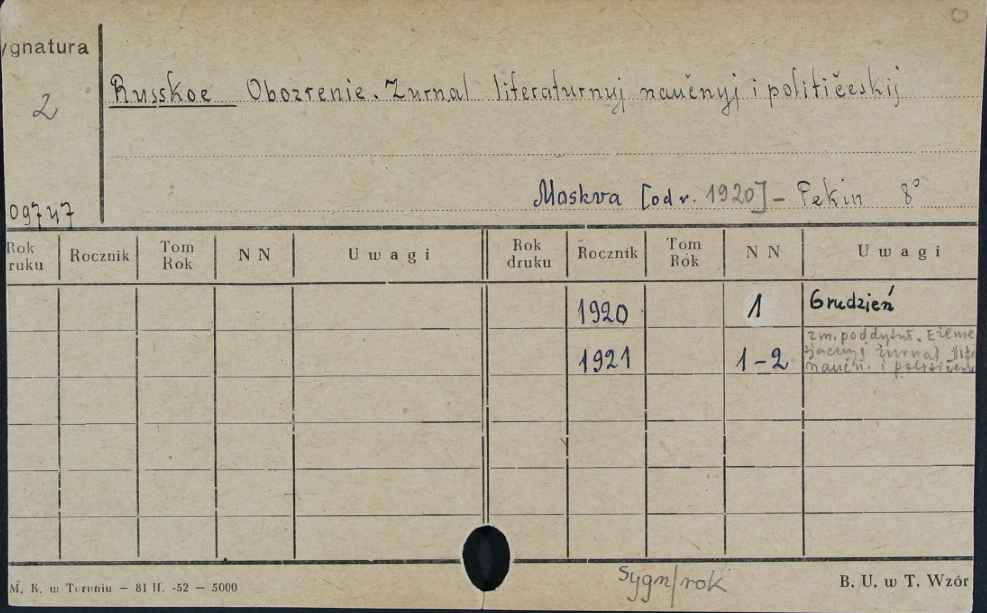 ygnatura
2
Russkoe Obozrenie. Žurnal literaturnyj naučnyj i političeskij
Moskva [od r. 1920] – Pekin 8°
09747
Rok ruku Rocznik Tom Rok NN Uwagi Rok druku Rocznik Tom Rok NN Uwagi
1920 1 Grudzień
1921 1-2 zm. poddytuł. Ežeme
sjačnyj žurnal lite
naučn. i političesk
M. K. w Toruniu – 81 II. -52 – 5000
Sygn/rok
B. U. w T. Wzór